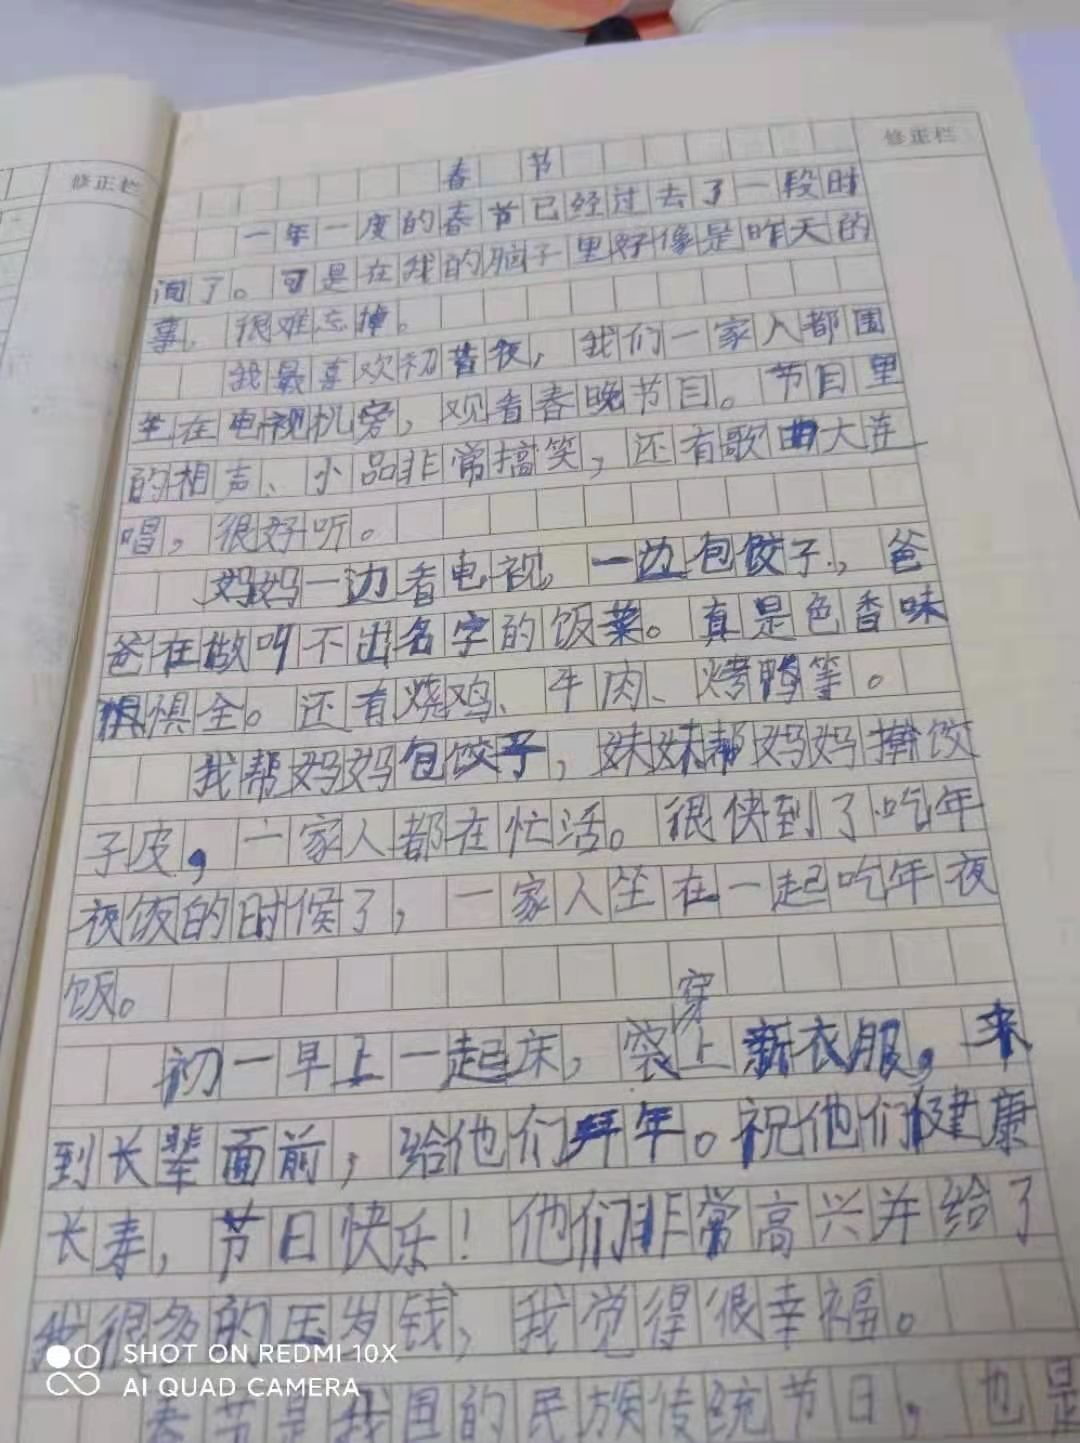 修正栏
修正栏
春 节
一年一度的春节已经过去了一段时
间了。可是在我的脑子里好像是昨天的
事,很难忘掉。
我最喜欢初昔夜,我们一家人都围
坐在电视机旁,观看春晚节目。节目里
的相声、小品非常搞笑,还有歌曲大连
唱,很好听。
妈妈一边看电视,一边包饺子,爸
爸在做叫不出名字的饭菜。真是色香味
惧全。还有烧鸡、牛肉、烤鸭等。
我帮妈妈包饺子,妹妹帮妈妈擀饺
子皮,一家人都在忙活。很快到了吃年
夜饭的时候了,一家人坐在一起吃年夜
饭。
初一早上一起床,穿上新衣服,来
到长辈面前,给他们拜年。祝他们健康
长寿,节日快乐!他们非常高兴并给了
我很多的压岁钱,我觉得很幸福。
春节是我国的民族传统节日,也是
SHOT ON REDMI 10X
AI QUAD CAMERA